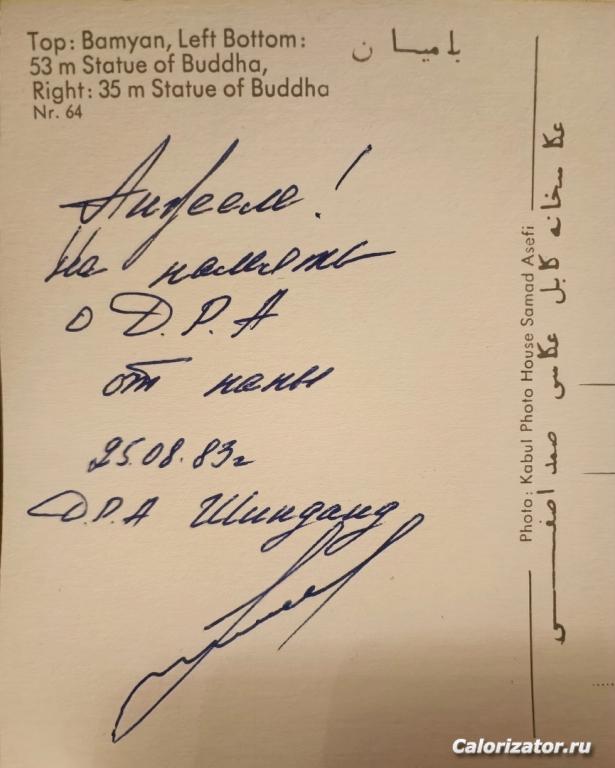 Top: Bamyan, Left Bottom:
53 m Statue of Buddha,
Right: 35 m Statue of Buddha
Nr. 64
بامیان
Анжеле!
На память
о Д.Р.А
от папы
25.08.83г
Д.Р.А Шинданд
Photo: Kabul Photo House Samad Asefi
عکاسخانه کابل عکاسی صمد اصفی
Calorizator.ru